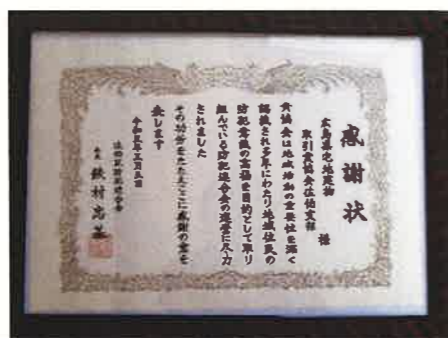 感謝状
広島県宅地建物
取引業協会佐伯支部 様
貴協会は地域活動の重要性を深く
認識され多年にわたり地域住民の
防犯意識の高揚を目的として取り
組んでいる防犯連合会の運営に尽力
されました
その功労をたたえここに感謝の意を
表します
令和三年三月三日
会長